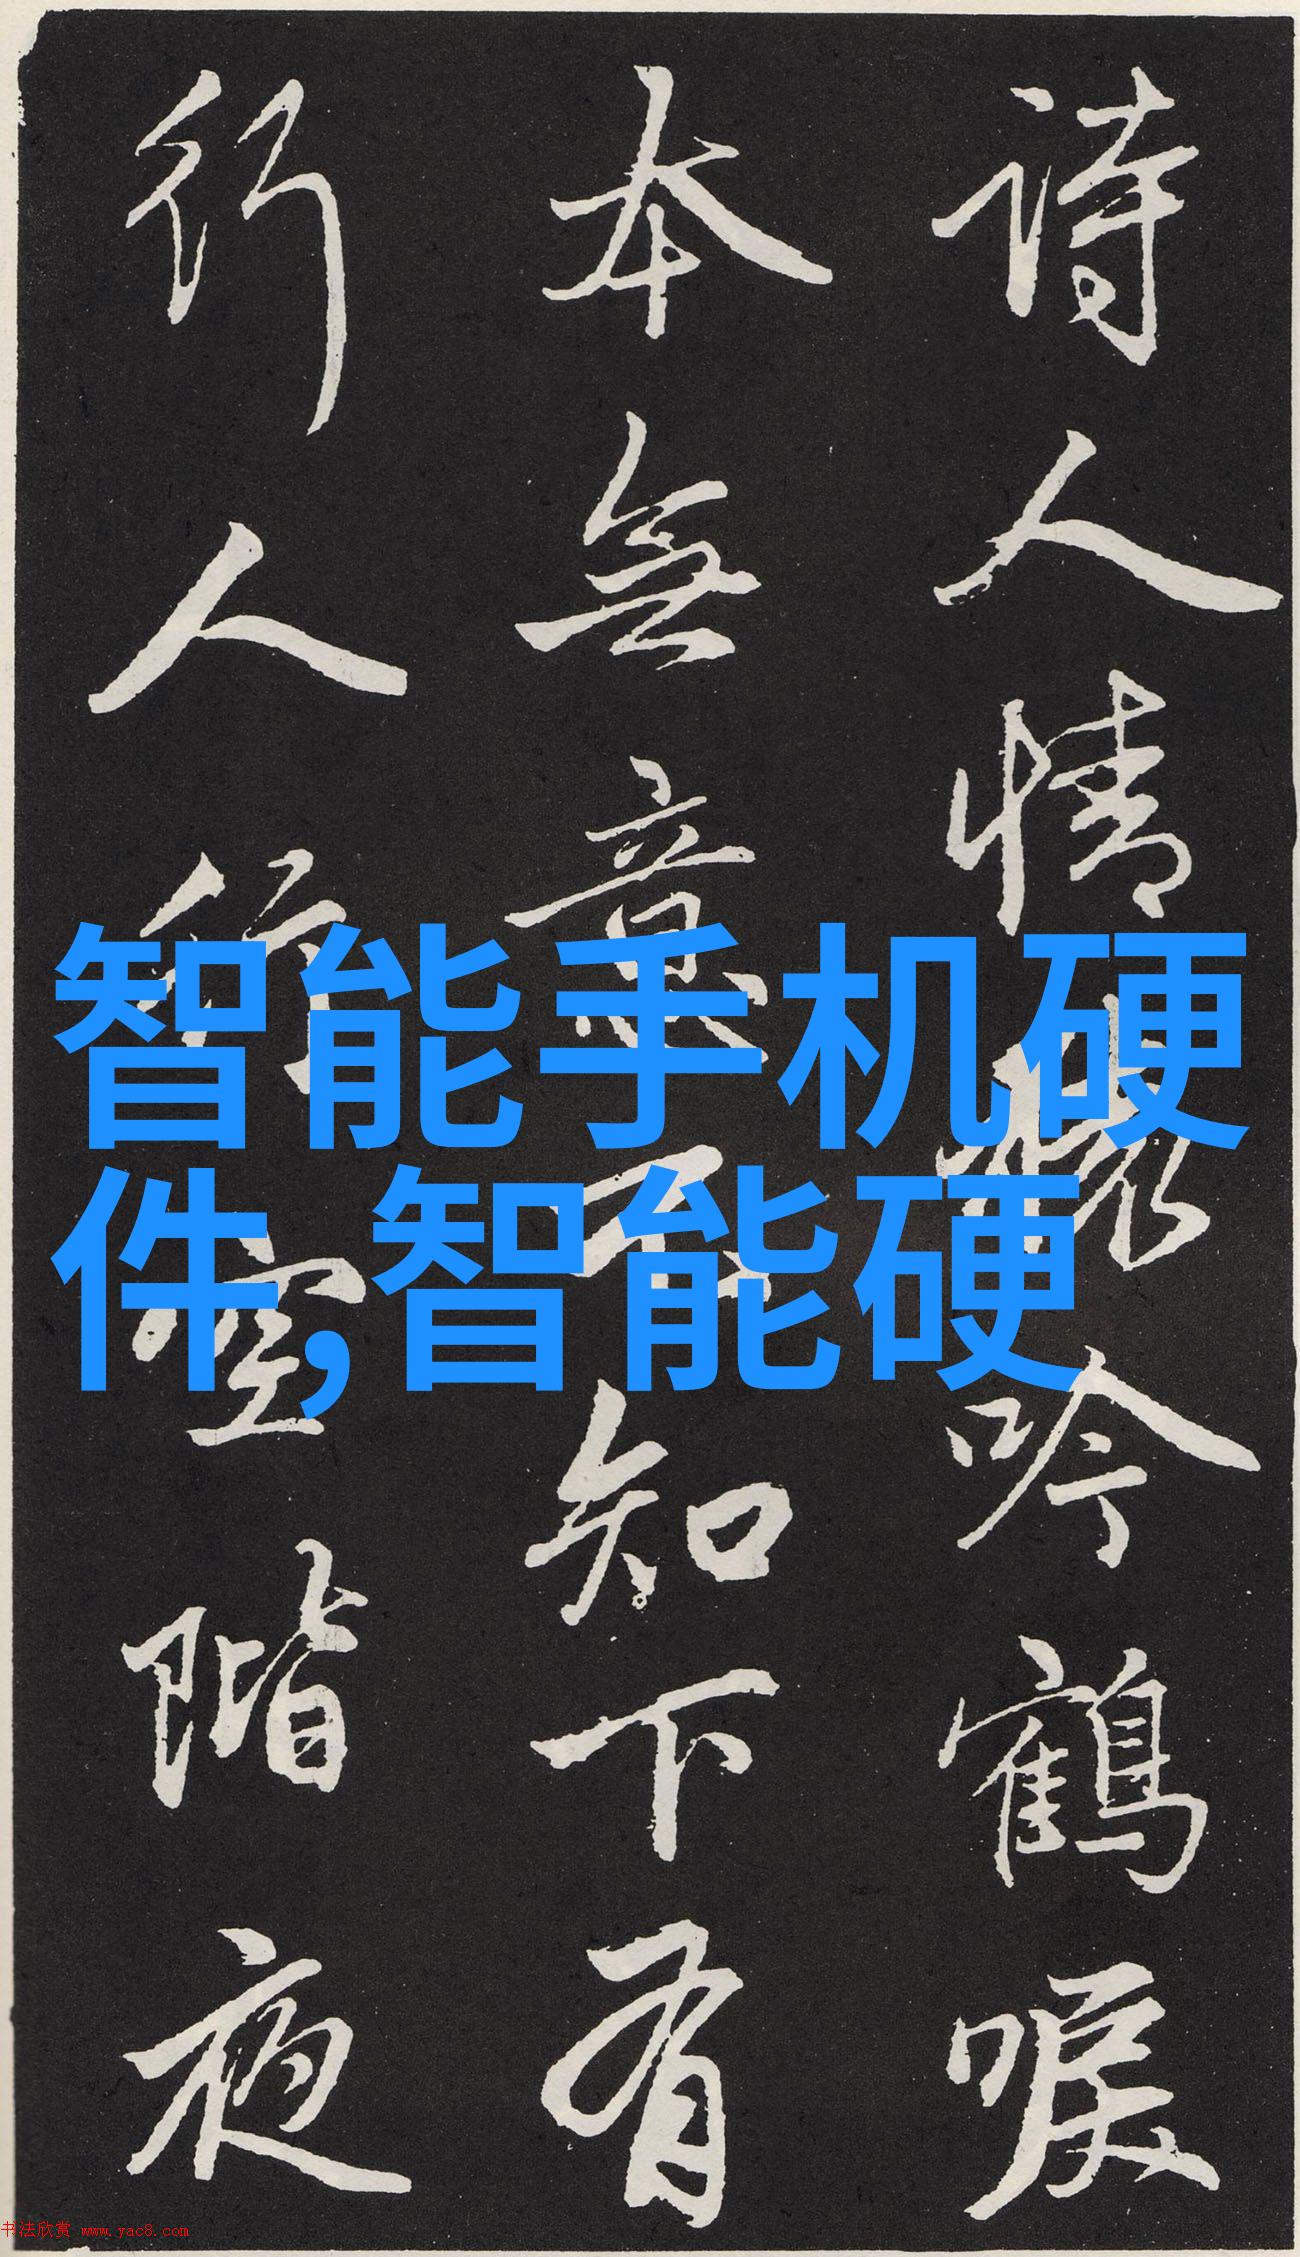 诗人情吟鶴唳
本無意不知下有
行人行空階夜
智能手机硬
件,智能硬
书法欣赏 www.yac8.com